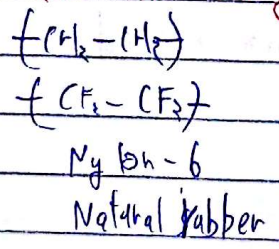 -(CH₂-CH₂)-
-(CF₂-CF₂)-
Nylon-6
Natural rubber